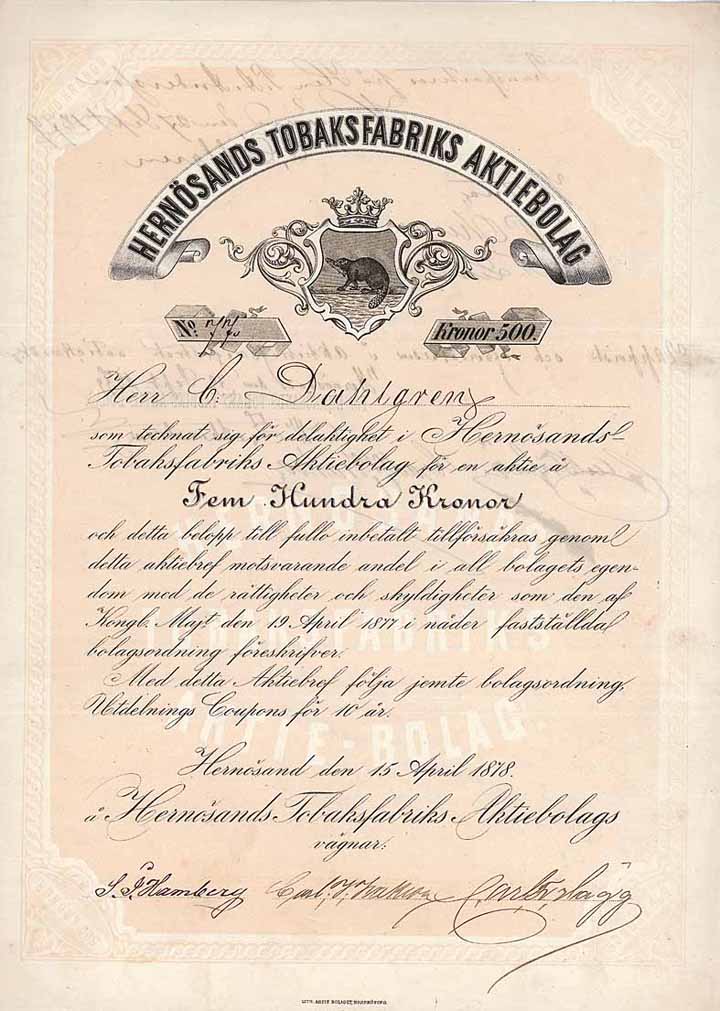 HERNÖSANDS TOBAKSFABRIKS AKTIEBOLAG
No.
Kronor 500.
Herr C. Dahlgren
som technat sig för delaktighet i Hernösands
Tobaksfabriks Aktiebolag för en aktie å
Fem Hundra Kronor
och detta belopp till fullo inbetalt tillförsäkras genom
detta aktiebref motsvarande andel i all bolagets egen-
dom med de rättigheter och skyldigheter som den af
Kongl. Majt den 19 April 1877 i nåder fastställda
bolagsordning föreskrifver.
Med detta Aktiebref följa jemte bolagsordning,
Utdelnings Coupons för 10 år.
Hernösand den 15 April 1878.
å Hernösands Tobaksfabriks Aktiebolags
vägnar:
Hamberg
TOBAKSFABRIKS
AKTIE-BOLAG.